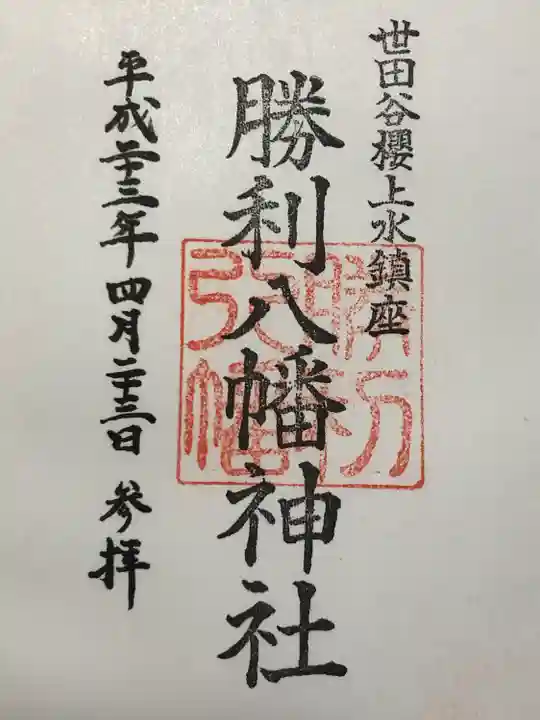 世田谷櫻上水鎮座
勝利八幡神社
平成二十三年四月二十三日 参拝
勝利八幡